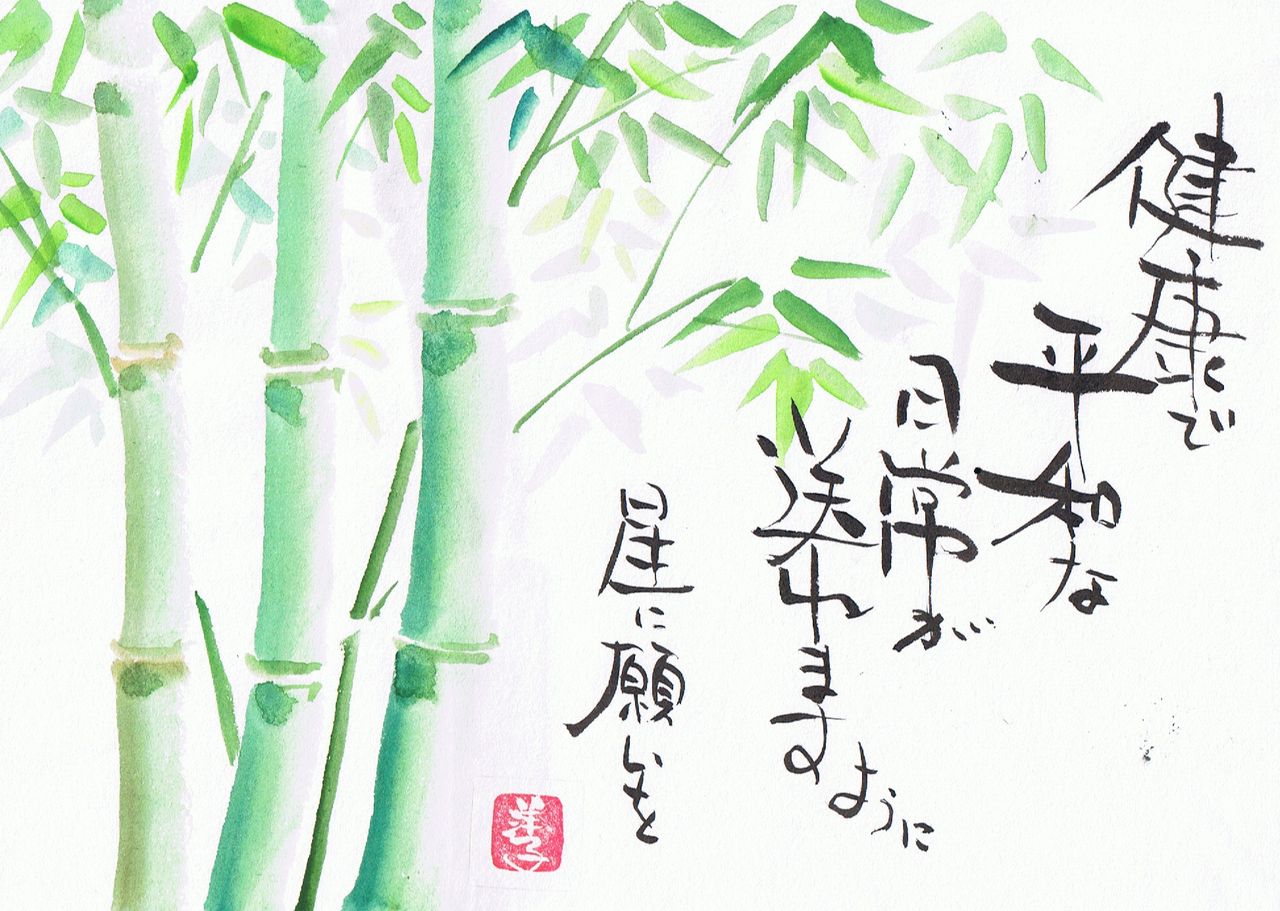 健康で
平和な
日常が
送れます
ように
星に願いを